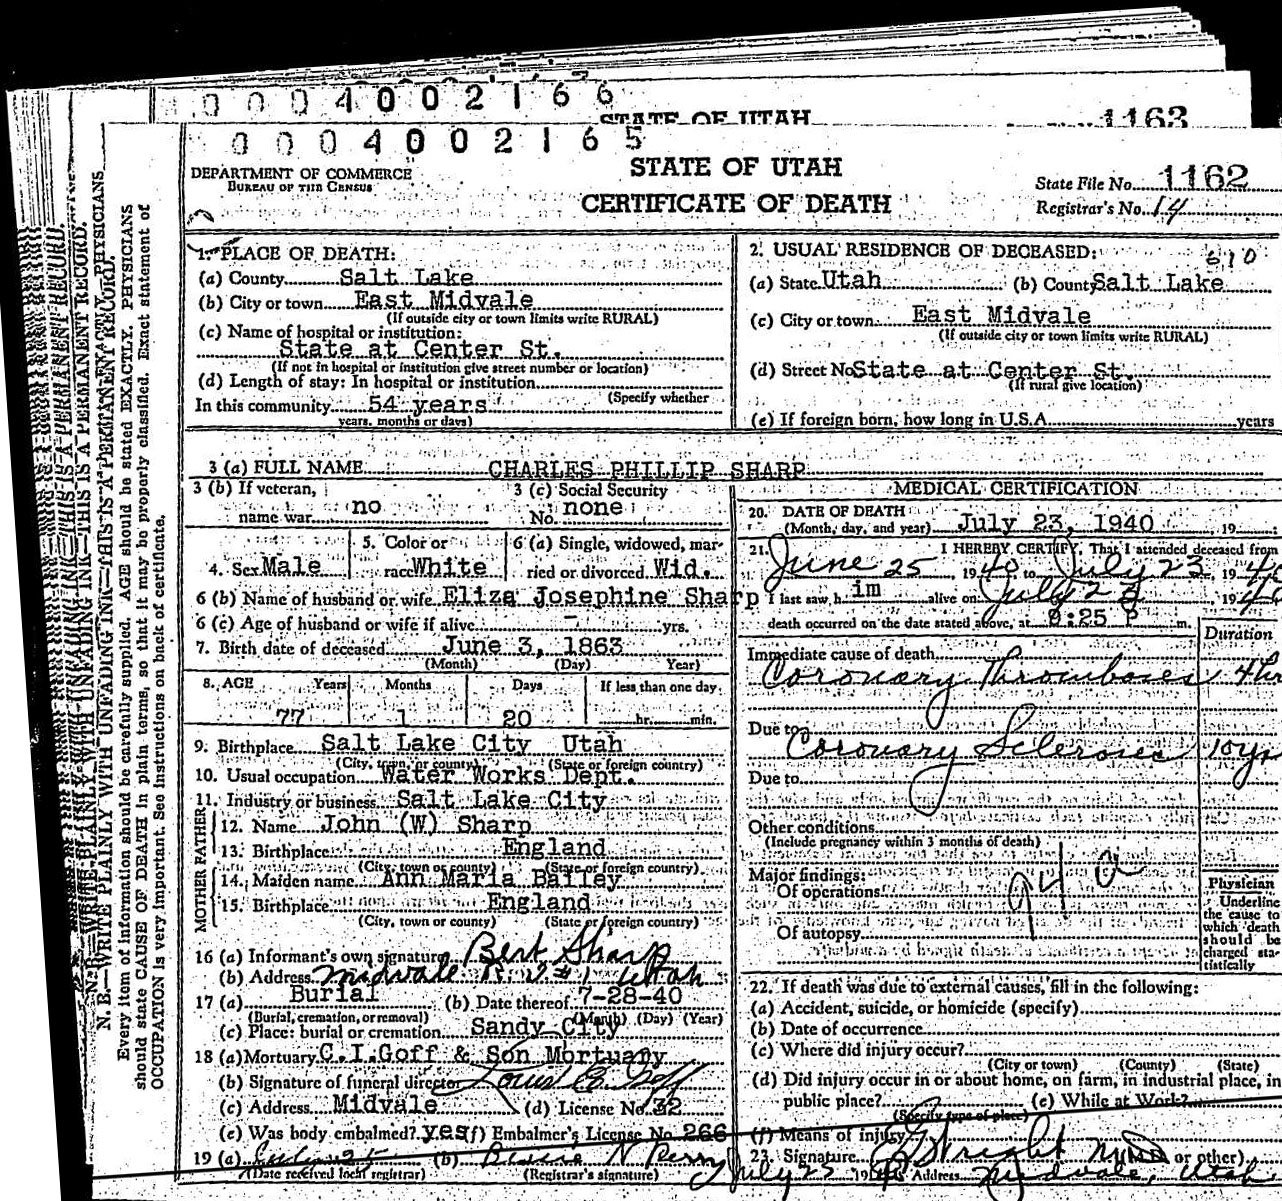 0004002166
STATE OF UTAH
1163
0004002165
DEPARTMENT OF COMMERCE
BUREAU OF THE CENSUS
STATE OF UTAH
CERTIFICATE OF DEATH
State File No. 1162
Registrar's No. 14
N. B.—WRITE PLAINLY WITH UNFADING INK—THIS IS A PERMANENT RECORD.
Every item of information should be carefully supplied. AGE should be stated EXACTLY. PHYSICIANS
should state CAUSE OF DEATH in plain terms, so that it may be properly classified. Exact statement of
OCCUPATION is very important. See instructions on back of certificate.
1. PLACE OF DEATH:
(a) County Salt Lake
(b) City or town East Midvale
(If outside city or town limits write RURAL)
(c) Name of hospital or institution:
State at Center St.
(If not in hospital or institution give street number or location)
(d) Length of stay: In hospital or institution
(Specify whether
In this community 54 years
years, months or days)
2. USUAL RESIDENCE OF DECEASED: 610
(a) State Utah (b) County Salt Lake
(c) City or town East Midvale
(If outside city or town limits write RURAL)
(d) Street No State at Center St.
(If rural give location)
(e) If foreign born, how long in U.S.A. years
3 (a) FULL NAME CHARLES PHILLIP SHARP
3 (b) If veteran, name war no
3 (c) Social Security No. none
4. Sex Male
5. Color or race White
6 (a) Single, widowed, married or divorced Wid.
6 (b) Name of husband or wife Eliza Josephine Sharp
6 (c) Age of husband or wife if alive - yrs.
7. Birth date of deceased June 3, 1863
(Month) (Day) Year)
8. AGE Years Months Days If less than one day
77 1 20 hr. min.
9. Birthplace Salt Lake City Utah
(City, town, or county) (State or foreign country)
10. Usual occupation Water Works Dept.
11. Industry or business Salt Lake City
FATHER
12. Name John (W) Sharp
13. Birthplace England
(City, town or county) (State or foreign country)
MOTHER
14. Maiden name Ann Maria Bailey
15. Birthplace England
(City, town or county) (State or foreign country)
16 (a) Informant's own signature Bert Sharp
(b) Address Midvale R. D. #1 Utah
17 (a) Burial (b) Date thereof 7-28-40
(Burial, cremation, or removal) (Month) (Day) (Year)
(c) Place: burial or cremation Sandy City
18 (a) Mortuary C. I. Goff & Son Mortuary
(b) Signature of funeral director Louis E. Goff
(c) Address Midvale (d) License No. 32
(e) Was body embalmed? yes (f) Embalmer's License No. 266
19 (a) (b) Bessie N
(Date received local registrar) (Registrar's signature)
MEDICAL CERTIFICATION
20. DATE OF DEATH
(Month, day, and year) July 23, 1940, 19
21. I HEREBY CERTIFY, That I attended deceased from
June 25, 1940, to July 23, 1940
I last saw him alive on July 23 1940
death occurred on the date stated above, at 8:25 P m.
Duration
Immediate cause of death
Coronary Thromboses 4 hr
Due to
Coronary Scleroses 10 yr
Due to
Other conditions
(Include pregnancy within 3 months of death)
94a
Major findings:
Of operations
Of autopsy
Physician
Underline
the cause to
which death
should be
charged sta-
tistically
22. If death was due to external causes, fill in the following:
(a) Accident, suicide, or homicide (specify)
(b) Date of occurrence
(c) Where did injury occur?
(City or town) (County) (State)
(d) Did injury occur in or about home, on farm, in industrial place, in
public place? (e) While at Work?
(Specify type of place)
(f) Means of injury
23. Signature M.D. or other)
July 25 1940 Address Midvale, Utah